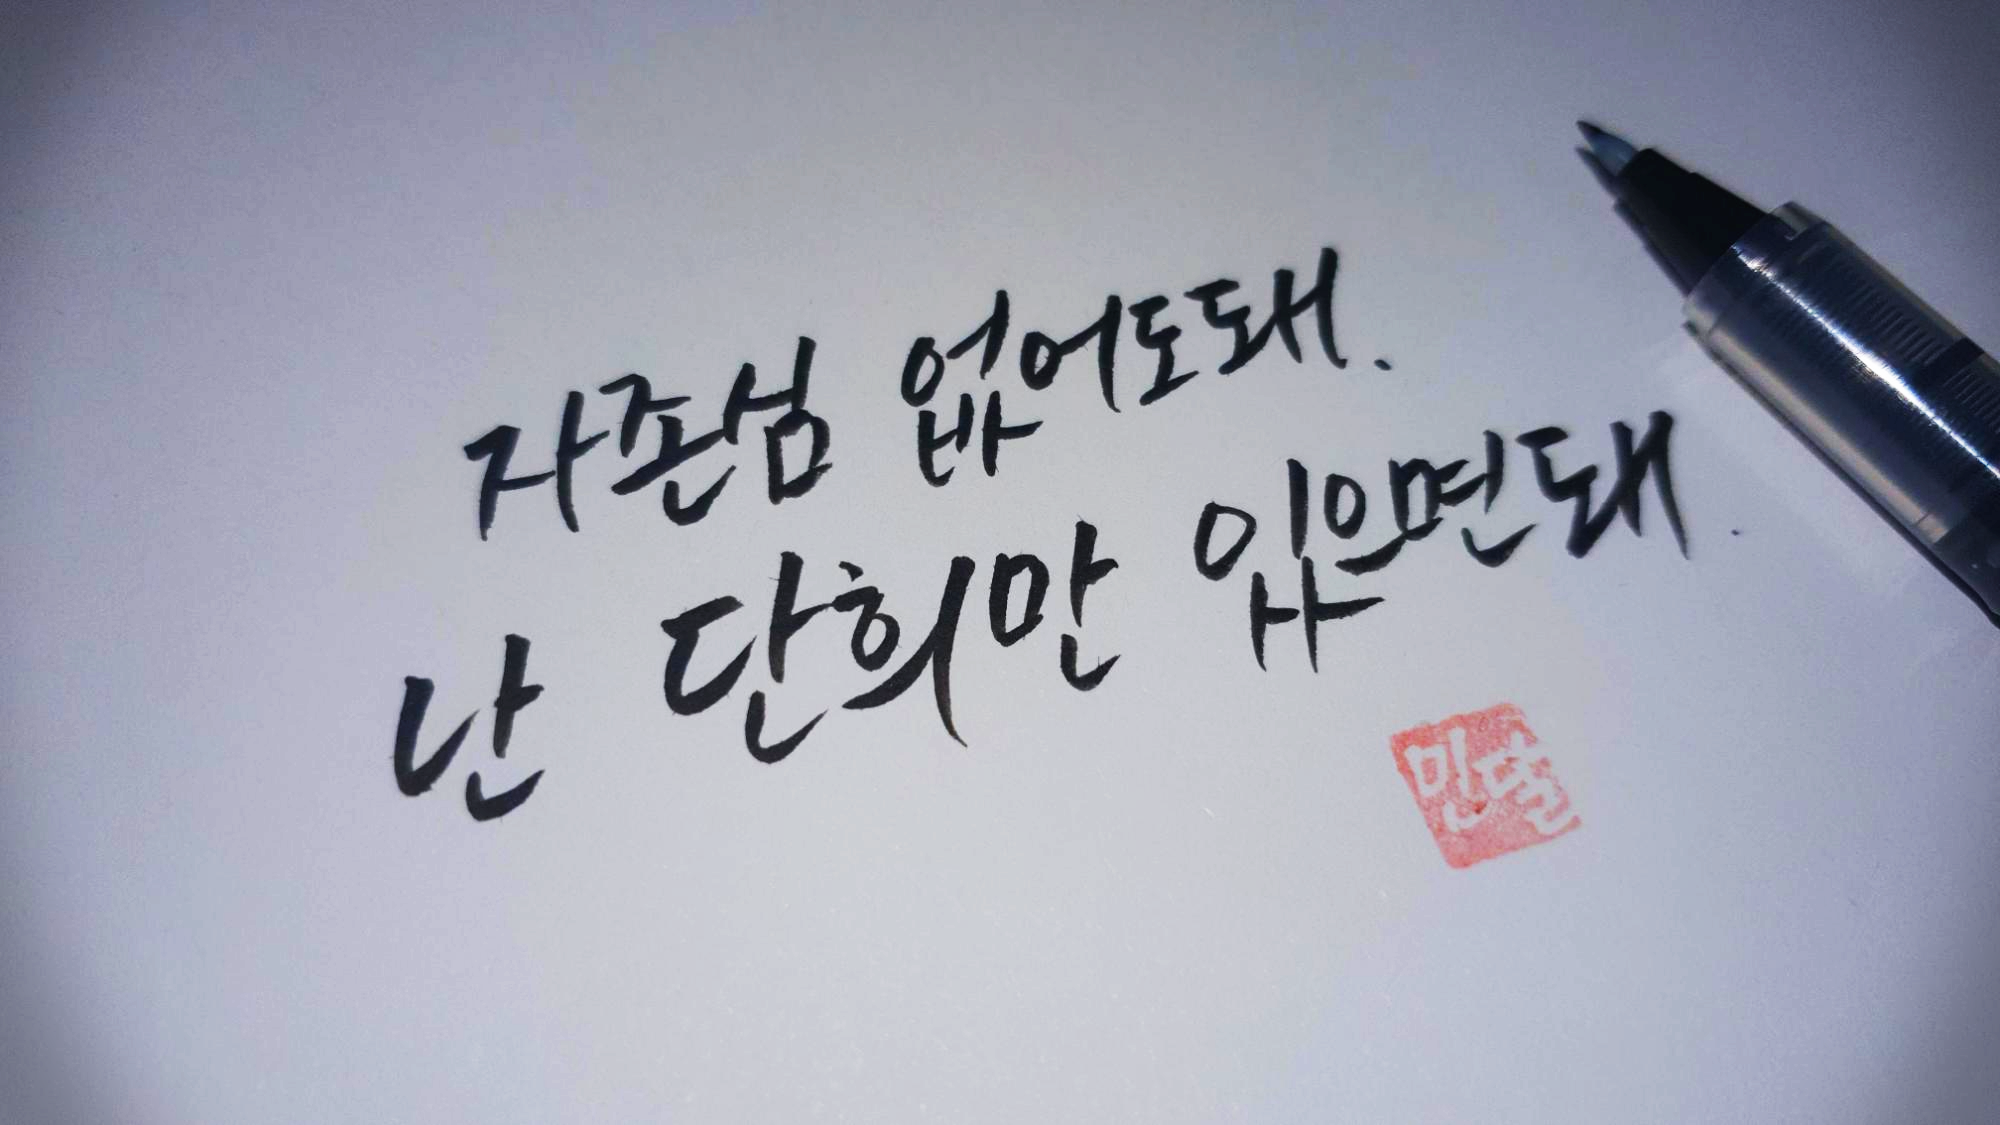 자존심 없어도돼.
난 단희만 있으면돼.
민달